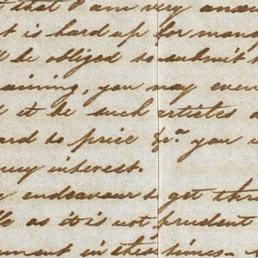 that I am very anx
t is hard up for mon
ll be obliged to submit t
aining, you may even
d it be such articles a
ard to price &c. you w
my interest.
endeavour to get thr
as it is not prudent
ment in these times -